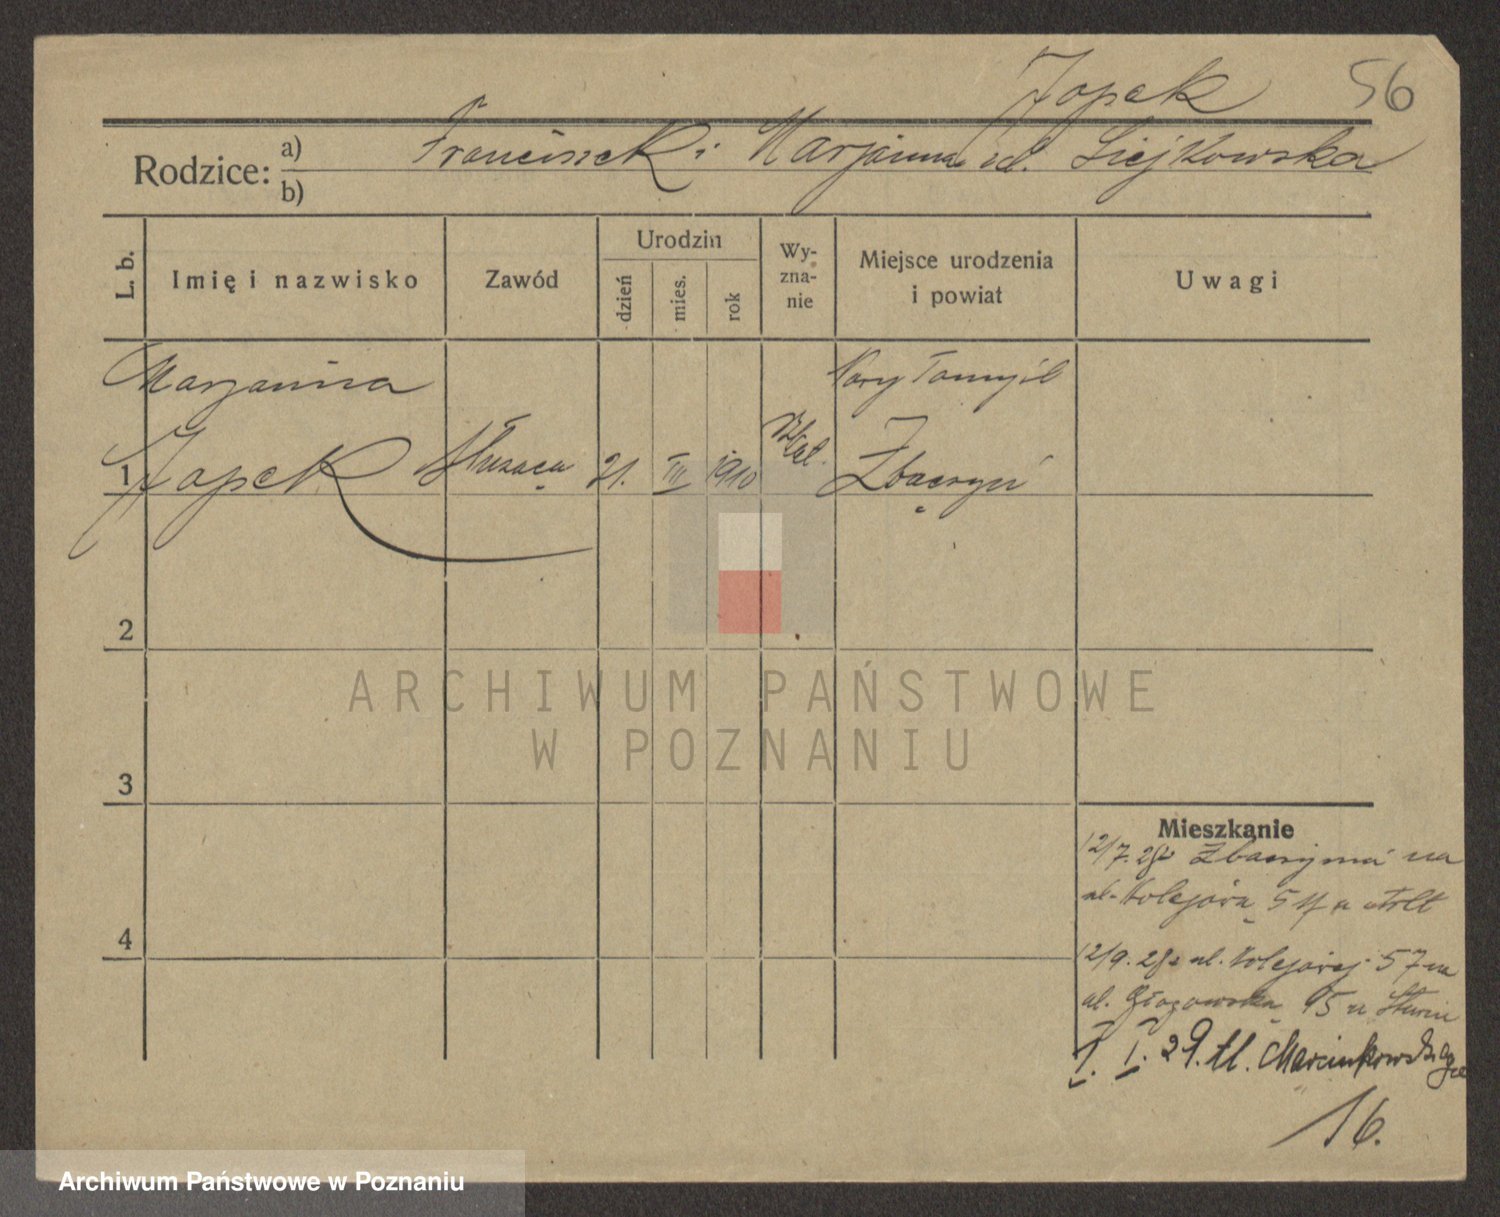 Jopek 56
Rodzice: a) Franciszek i Marjanna
b)
L. b. Imię i nazwisko Zawód Urodzin dzień mies. rok Wy-zna-nie Miejsce urodzenia i powiat Uwagi
Marjanna Nowy Tomyśl
1 Jopek Służąca 21. III 1910 Rz Kat. Zbąszyń
2
ARCHIWUM PAŃSTWOWE
W POZNANIU
3
Mieszkanie
12/7. 28 z Zbąszynia na
ul. Kolejową 57
4
12/9. 28 z ul. Kolejowej 57 na
ul. Głogowską 95 u
1. I. 29. Ał. Marcinkowskiego
16.
Archiwum Państwowe w Poznaniu